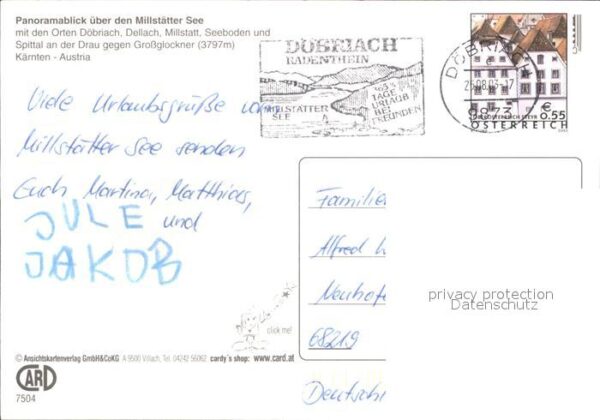 Panoramablick über den Millstätter See
mit den Orten Döbriach, Dellach, Millstatt, Seeboden und
Spittal an der Drau gegen Großglockner (3797m)
Kärnten - Austria
DÖBRIACH
RADENTHEIN
MILLSTÄTTER
SEE
365
TAGE
URLAUB
BEI
FREUNDEN
DÖBRIACH
25.08.03-17
9873
€
0.55
ÖSTERREICH
Viele Urlaubsgrüße vom
Millstätter See senden
Euch Martina, Matthias,
JULE und
JAKOB
Familie
Alfred
Neuhofe
68219
Deutschl
privacy protection
Datenschutz
click me!
© Ansichtskartenverlag GmbH&CoKG A 9500 Villach, Tel. 04242 56062 cardy's shop: www.card.at
CARD
7504